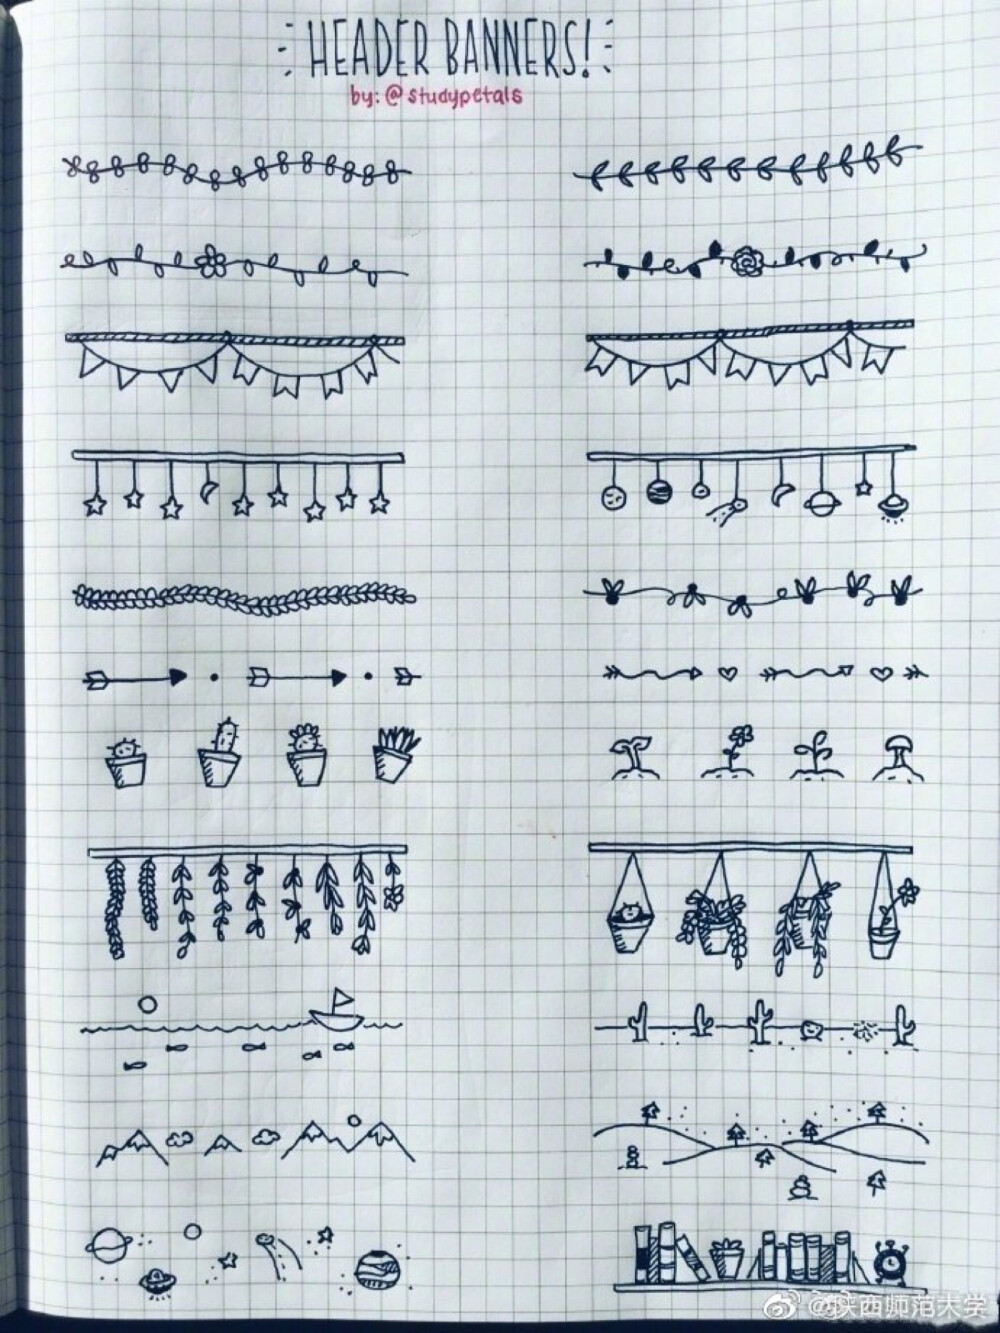 HEADER BANNERS!
by: @studypetals
@陕西师范大学